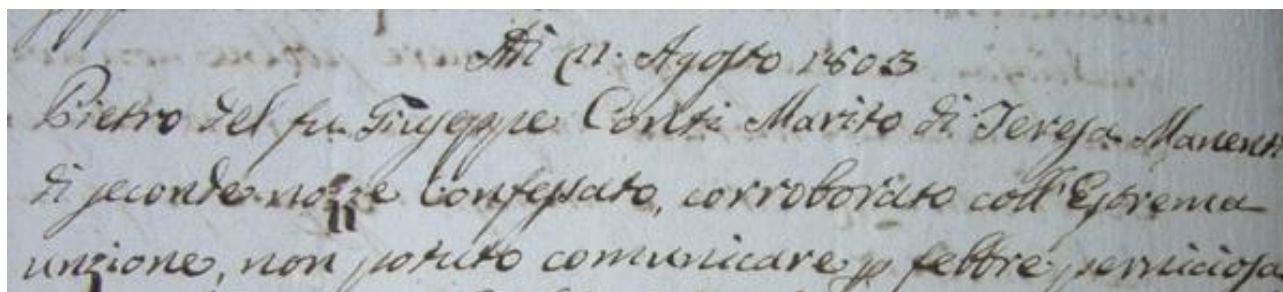 Adì 11. Agosto 1803
Pietro del fu Giuseppe Conti Marito di Teresa Manenti
di seconde nozze Confessato, corroborato coll'Estrema
unzione, non potuto comunicare p febbre perniciosa